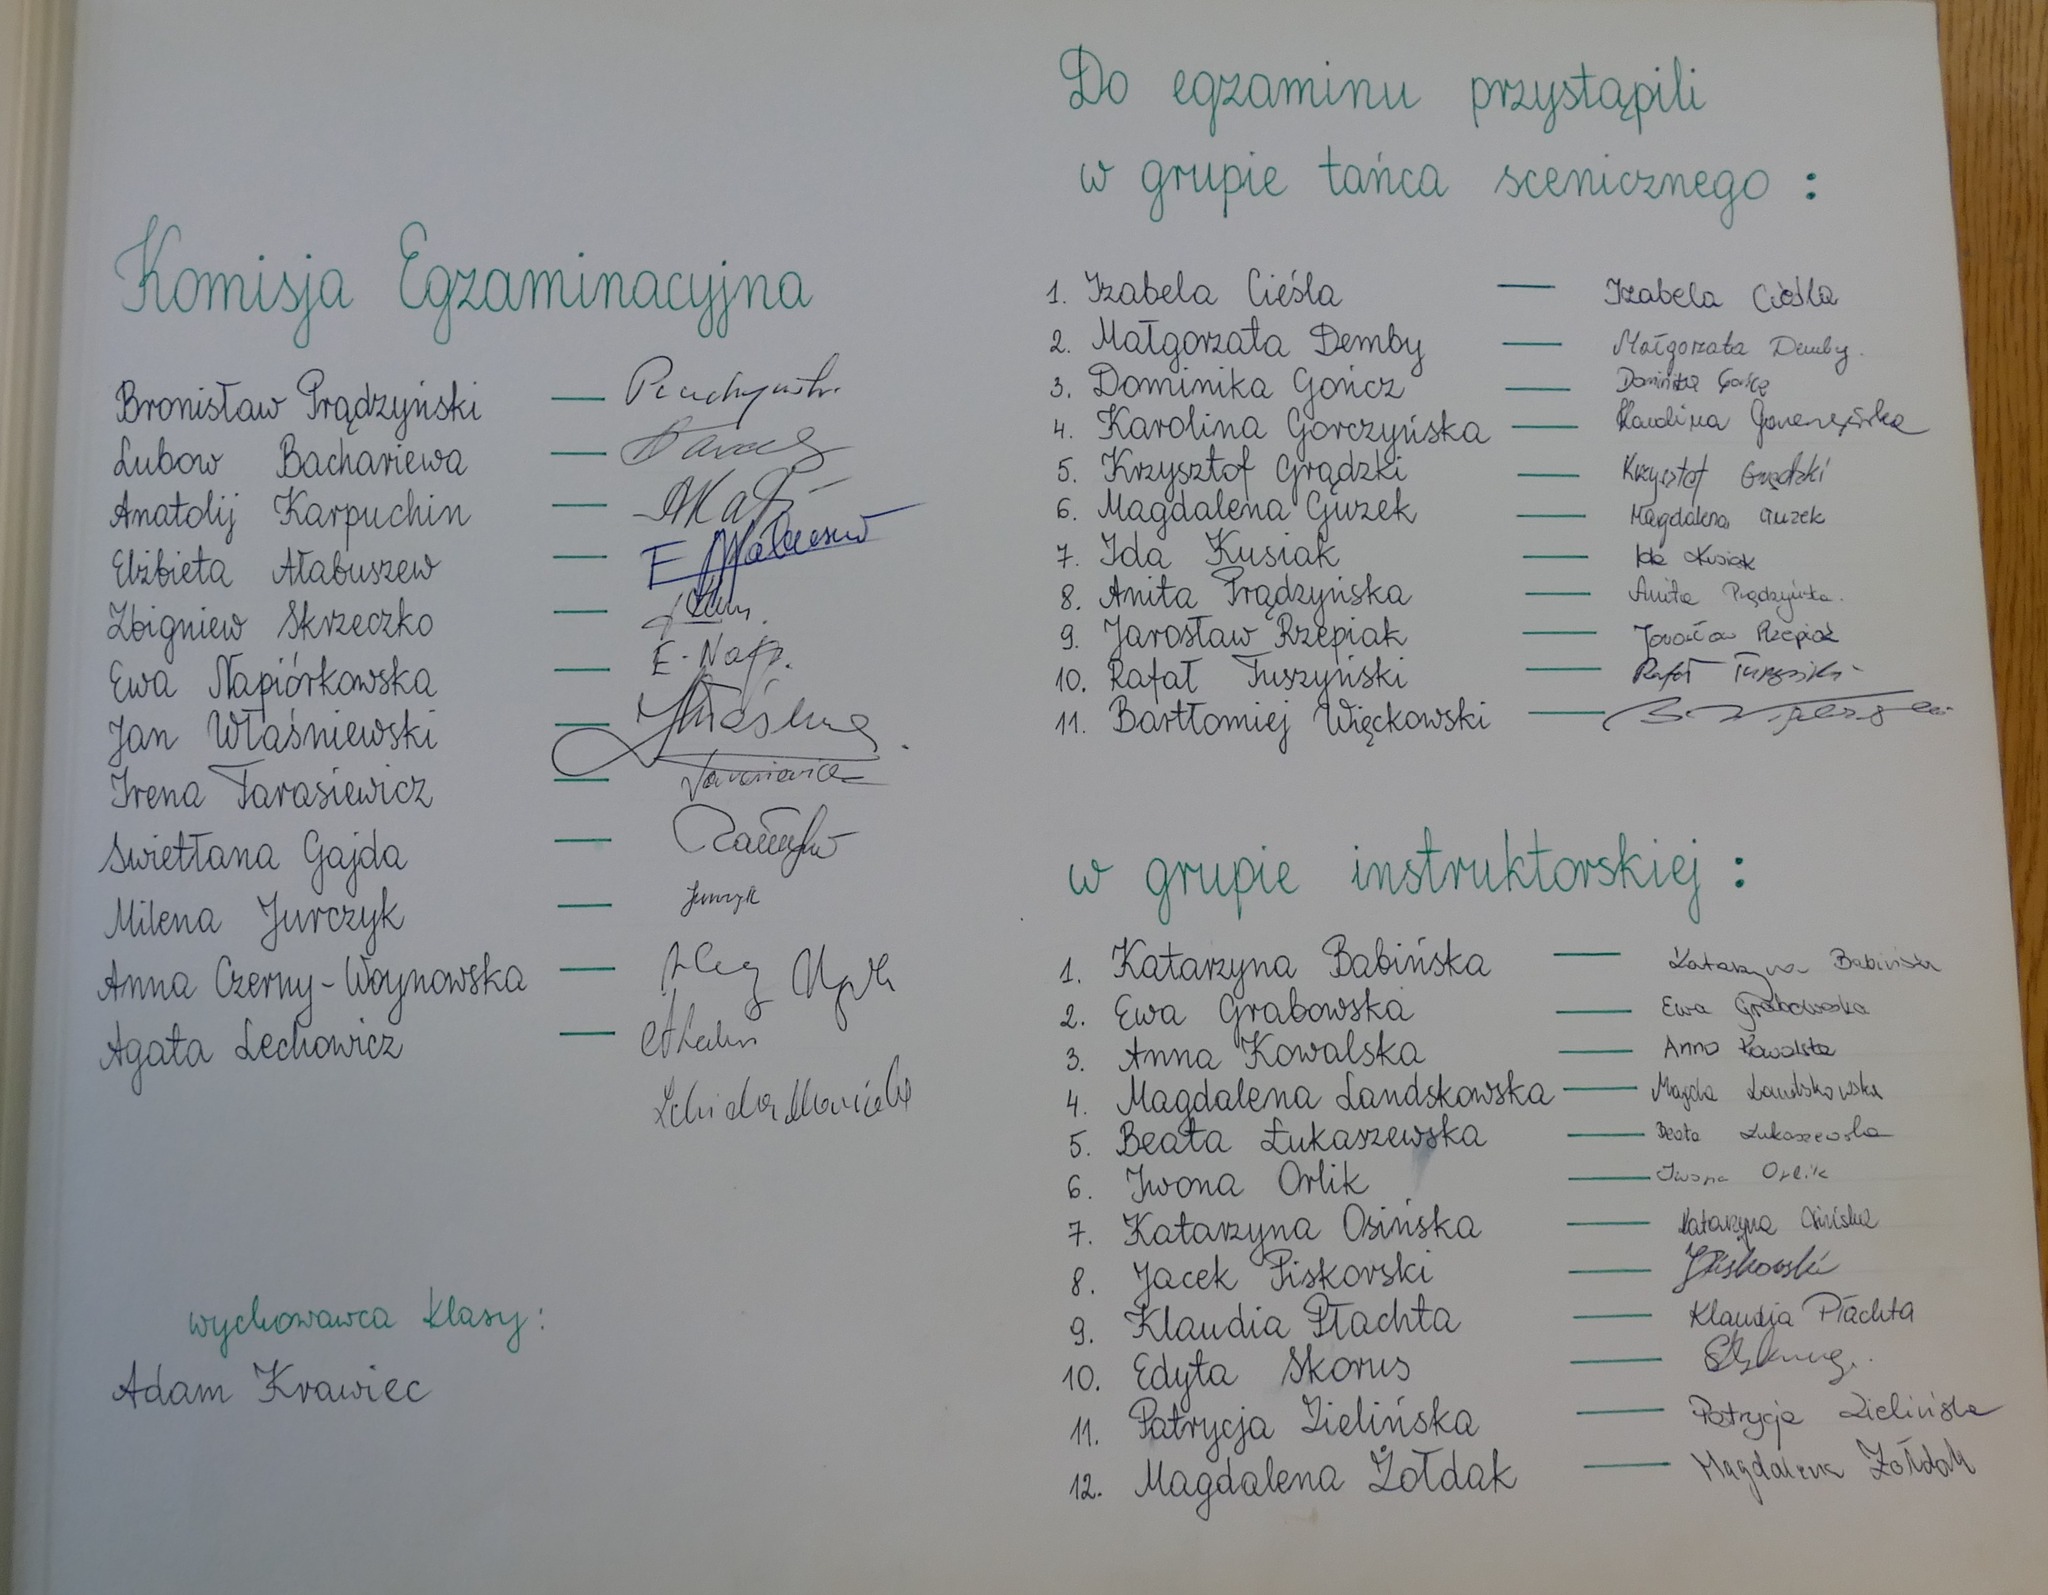 Komisja Egzaminacyjna
Bronisław Prądzyński —
Lubow Bachariewa —
Anatolij Karpuchin —
Elżbieta Ałabuszew —
Zbigniew Skrzeczko —
Ewa Napiórkowska — E. Nap.
Jan Właśniewski —
Irena Tarasiewicz — Tarasiewicz
Swietłana Gajda —
Milena Jurczyk — Jurczyk
Anna Czerny-Woynowska —
Agata Lechowicz —
wychowawca klasy:
Adam Krawiec
Do egzaminu przystąpili
w grupie tańca scenicznego :
1. Izabela Cieśla — Izabela Cieśla
2. Małgorzata Demby — Małgorzata Demby.
3. Dominika Gończ — Dominika
4. Karolina Gorczyńska — Karolina Gorczyńska
5. Krzysztof Grądzki — Krzysztof Grądzki
6. Magdalena Guzek — Magdalena Guzek
7. Ida Kusiak — Ida Kusiak
8. Anita Prądzyńska — Anita Prądzyńska.
9. Jarosław Rzepiak — Jarosław Rzepiak
10. Rafał Tuszyński — Rafał Tuszyński
11. Bartłomiej Więckowski —
w grupie instruktorskiej :
1. Katarzyna Babińska — Katarzyna Babińska
2. Ewa Grabowska — Ewa Grabowska
3. Anna Kowalska — Anna Kowalska
4. Magdalena Landskowska — Magda Landskowska
5. Beata Łukaszewska — Beata Łukaszewska
6. Iwona Orlik — Iwona Orlik
7. Katarzyna Osińska — Katarzyna Osińska
8. Jacek Piskorski — JPiskorski
9. Klaudia Płachta — Klaudja Płachta
10. Edyta Skorus —
11. Patrycja Zielińska — Patrycja Zielińska
12. Magdalena Żołdak — Magdalena Żołdak